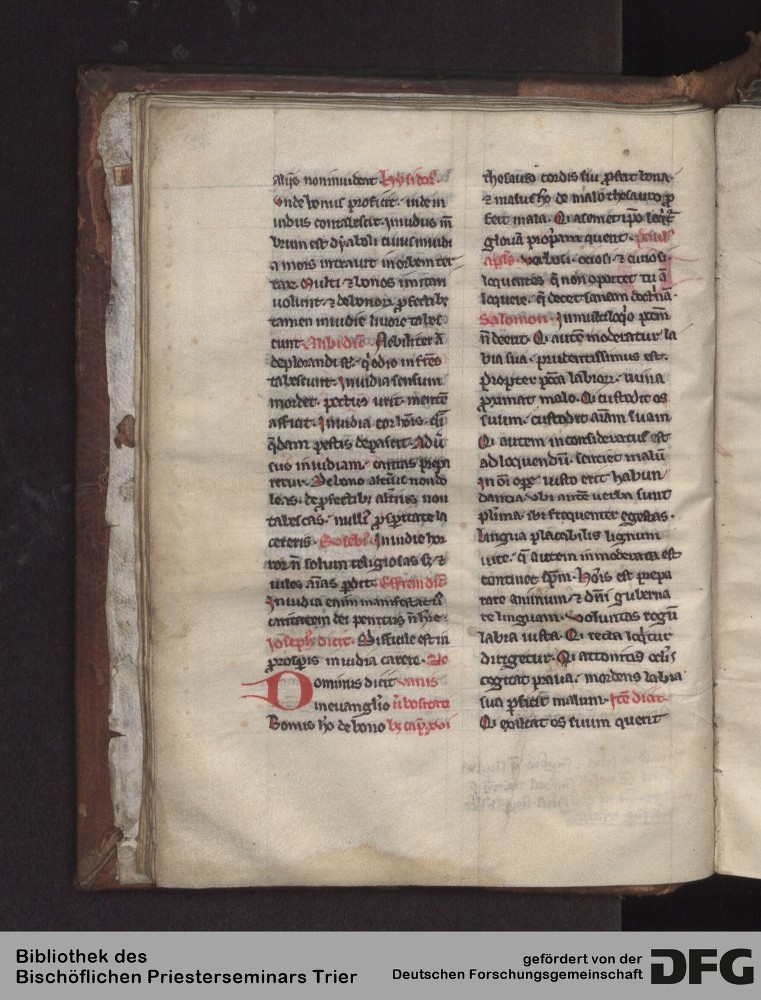 alijs non inuident Hysidor͛.
vnde bonus proficit. inde in
uidus contabescit. Inuidus m̄
brum est dyaboli cuius inuidi
a mors intrauit in orbem ter
rar̄. Multi ⁊ bonos imitari
nolunt. ⁊ de bonor̄ ꝓfectibꝫ
tamen inuidie liuore tabes
cunt.
deplorandi st̄. qͥ odio in fr̄es
tabescunt. Inuidia sensum
mordet. pectus urit. mentē
afficit. Inuidia cor hoīs. qͣsi
q̄dam pestis depascit. Aduͥ
sus inuidiam. caritas prepa
retur. De bono alterius non do
leas. de ꝓfectibꝫ alterius non
tabescas. nullͥ ꝓsperitate la
ceteris. Inuidie liuor
non solum religiosas sꝫ ⁊
uiles aīas ꝑdit. Effrem dicͭ
Inuidia enim manifestatͥ
caritatem dei penitus n̄ hr̄e.
Joseph͛ dicit. Difficile est in
ꝓsꝑis inuidia carere. De
Dominus dicit uanis
in euanglio ūbos
Bonus hͦ de bono cap̄. xxvi
thesauro cordis sui ꝓfert bona.
⁊ malus hͦ de malo thesauro ꝓ
fert mala. Qͥ a semet ipō loqͥt̄
gloriā propriam querit. Paulͥ
apl̄s. verbosi. ociosi. ⁊ curiosi.
loquentes q̄ non oportet tu āt
loquere. q̄ decet sanam doctͥnā.
Salomon. In multiloqͥo pctm̄
n̄ deerit. Qͥ autē moderatur la
bia sua. prudentissimus est.
Propter pctā labior̄. ruina
ꝓximat malo. Qͥ custodit os
suum. custodit aīam suam
Qͥ autem inconsideratus est
ad loquendū. sentiet malū
In oī oꝑe iusto erit habun
dantia. vbi autē uerba sunt
plͥima. ibi frequenter egestas.
Lingua placabilis lignum
uite. q̄ autem immoderata est
conteret sp̄m. Hoīs est prepa
rare animum. ⁊ dn̄i guberna
re linguam. Voluntas regū
labia iusta. Qͥ recta loqͥtur
dirigetur. Qͥ attonitis oclͥis
cogitat praua. mordens labia
sua ꝑficit malum. Itē dicit.
Qͥ exaltat os suum querit
Bibliothek des
Bischöflichen Priesterseminars Trier
gefördert von der
Deutschen Forschungsgemeinschaft
DFG